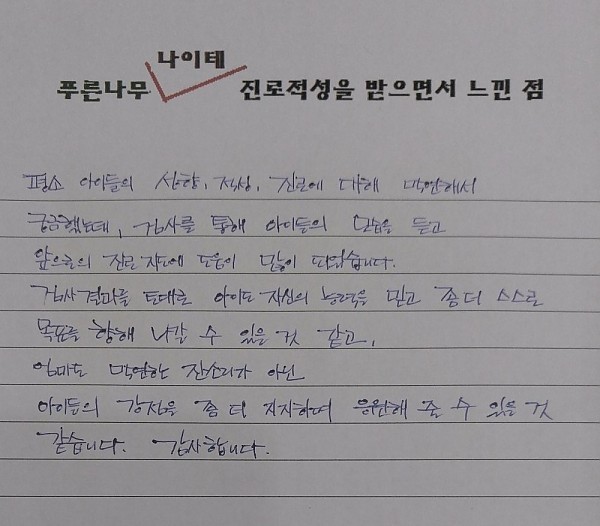 나이테
푸른나무 진로적성을 받으면서 느낀 점
평소 아이들의 성향, 적성, 진로에 대해 막연해서
궁금했는데, 검사를 통해 아이들의 모습을 듣고
앞으로의 진로지도에 도움이 많이 되었습니다.
검사결과를 토대로 아이도 자신의 능력을 믿고 좀 더 스스로
목표를 향해 나갈 수 있을 것 같고,
엄마도 막연한 잔소리가 아닌
아이들의 강점을 좀 더 지지하며 응원해 줄 수 있을 것
같습니다. 감사합니다.